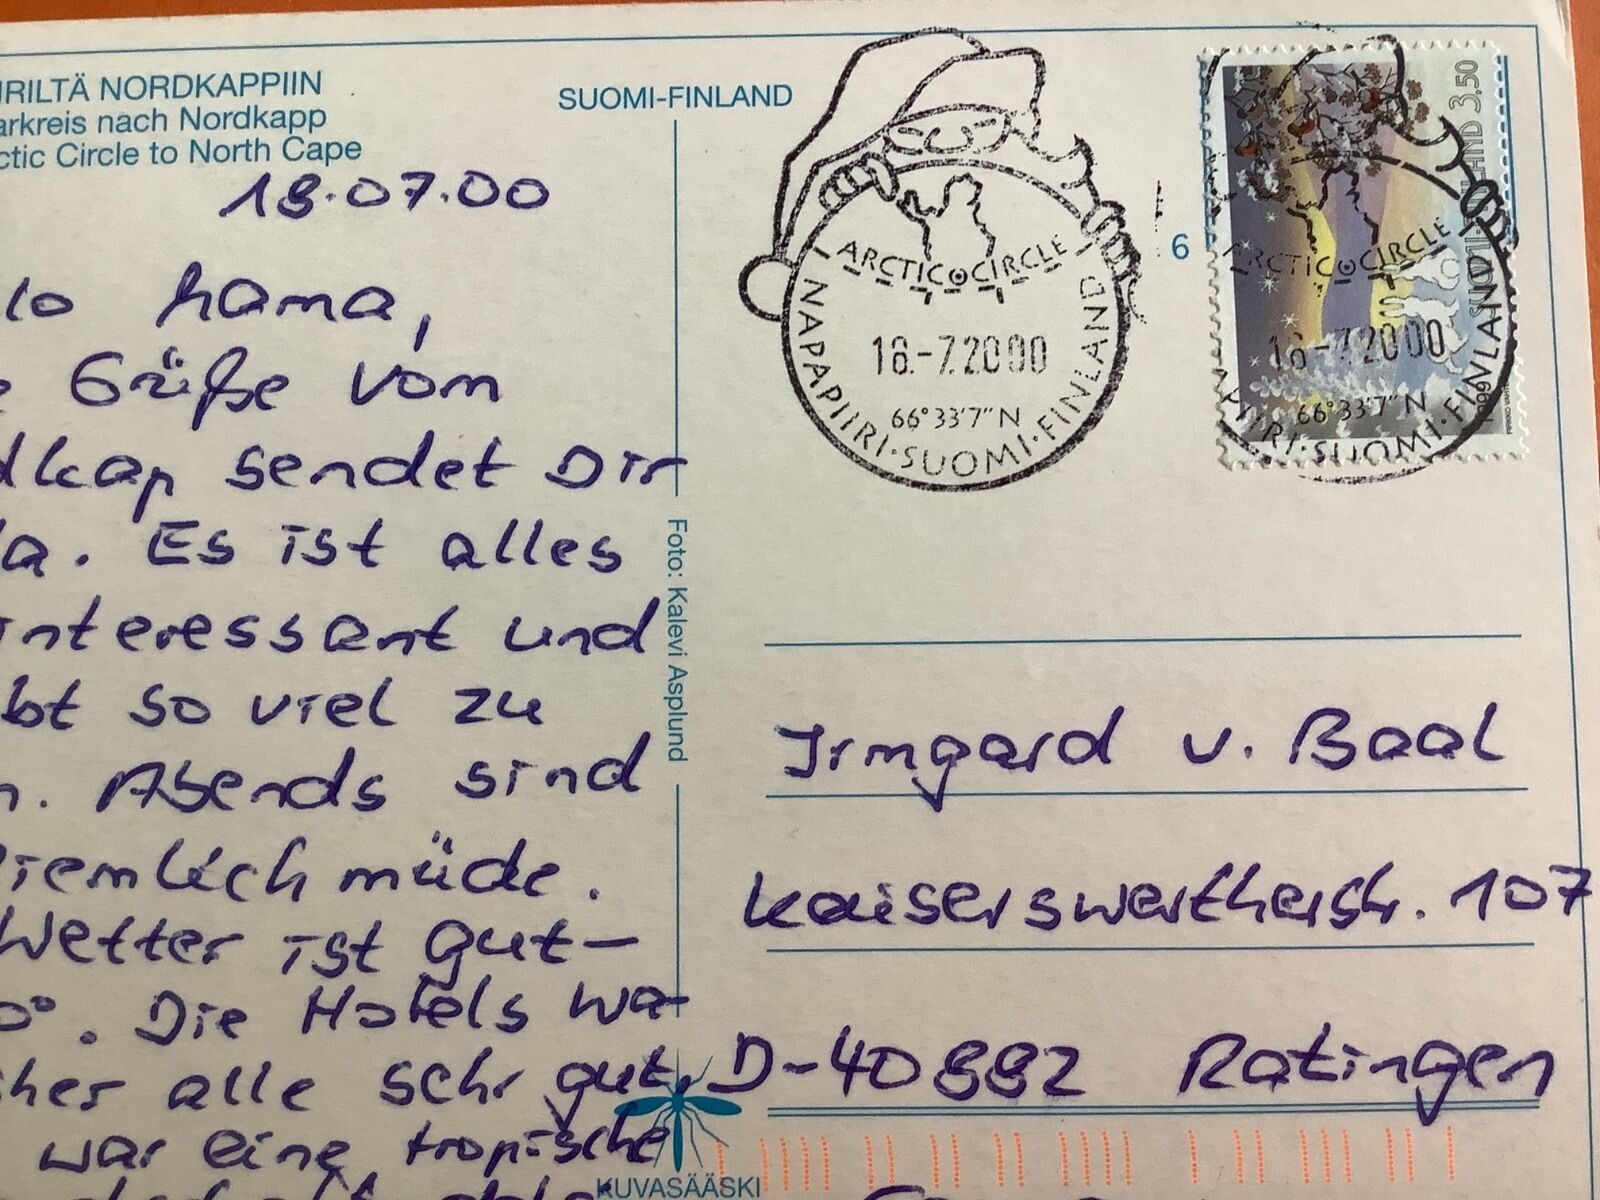 RILTÄ NORDKAPPIIN
arkreis nach Nordkapp
ctic Circle to North Cape
SUOMI-FINLAND
18.07.00
lo Mama,
Grüße vom
dkap sendet Dir
la. Es ist alles
interessant und
bt so viel zu
n. Abends sind
ziemlich müde.
Wetter ist gut-
0°. Die Hotels wa-
sher alle sehr gut.
war eine tropische
Foto: Kalevi Asplund
KUVASÄÄSKI
ARCTIC CIRCLE
18.-7.2000
66°33'7" N
NAPAPIIRI·SUOMI·FINLAND
6
3,50
ARCTIC CIRCLE
18.-7.2000
66°33'7" N
IIRI·SUOMI·FINLAND
Irmgard v. Baal
Kaiserswertherstr. 107
D-40882 Ratingen